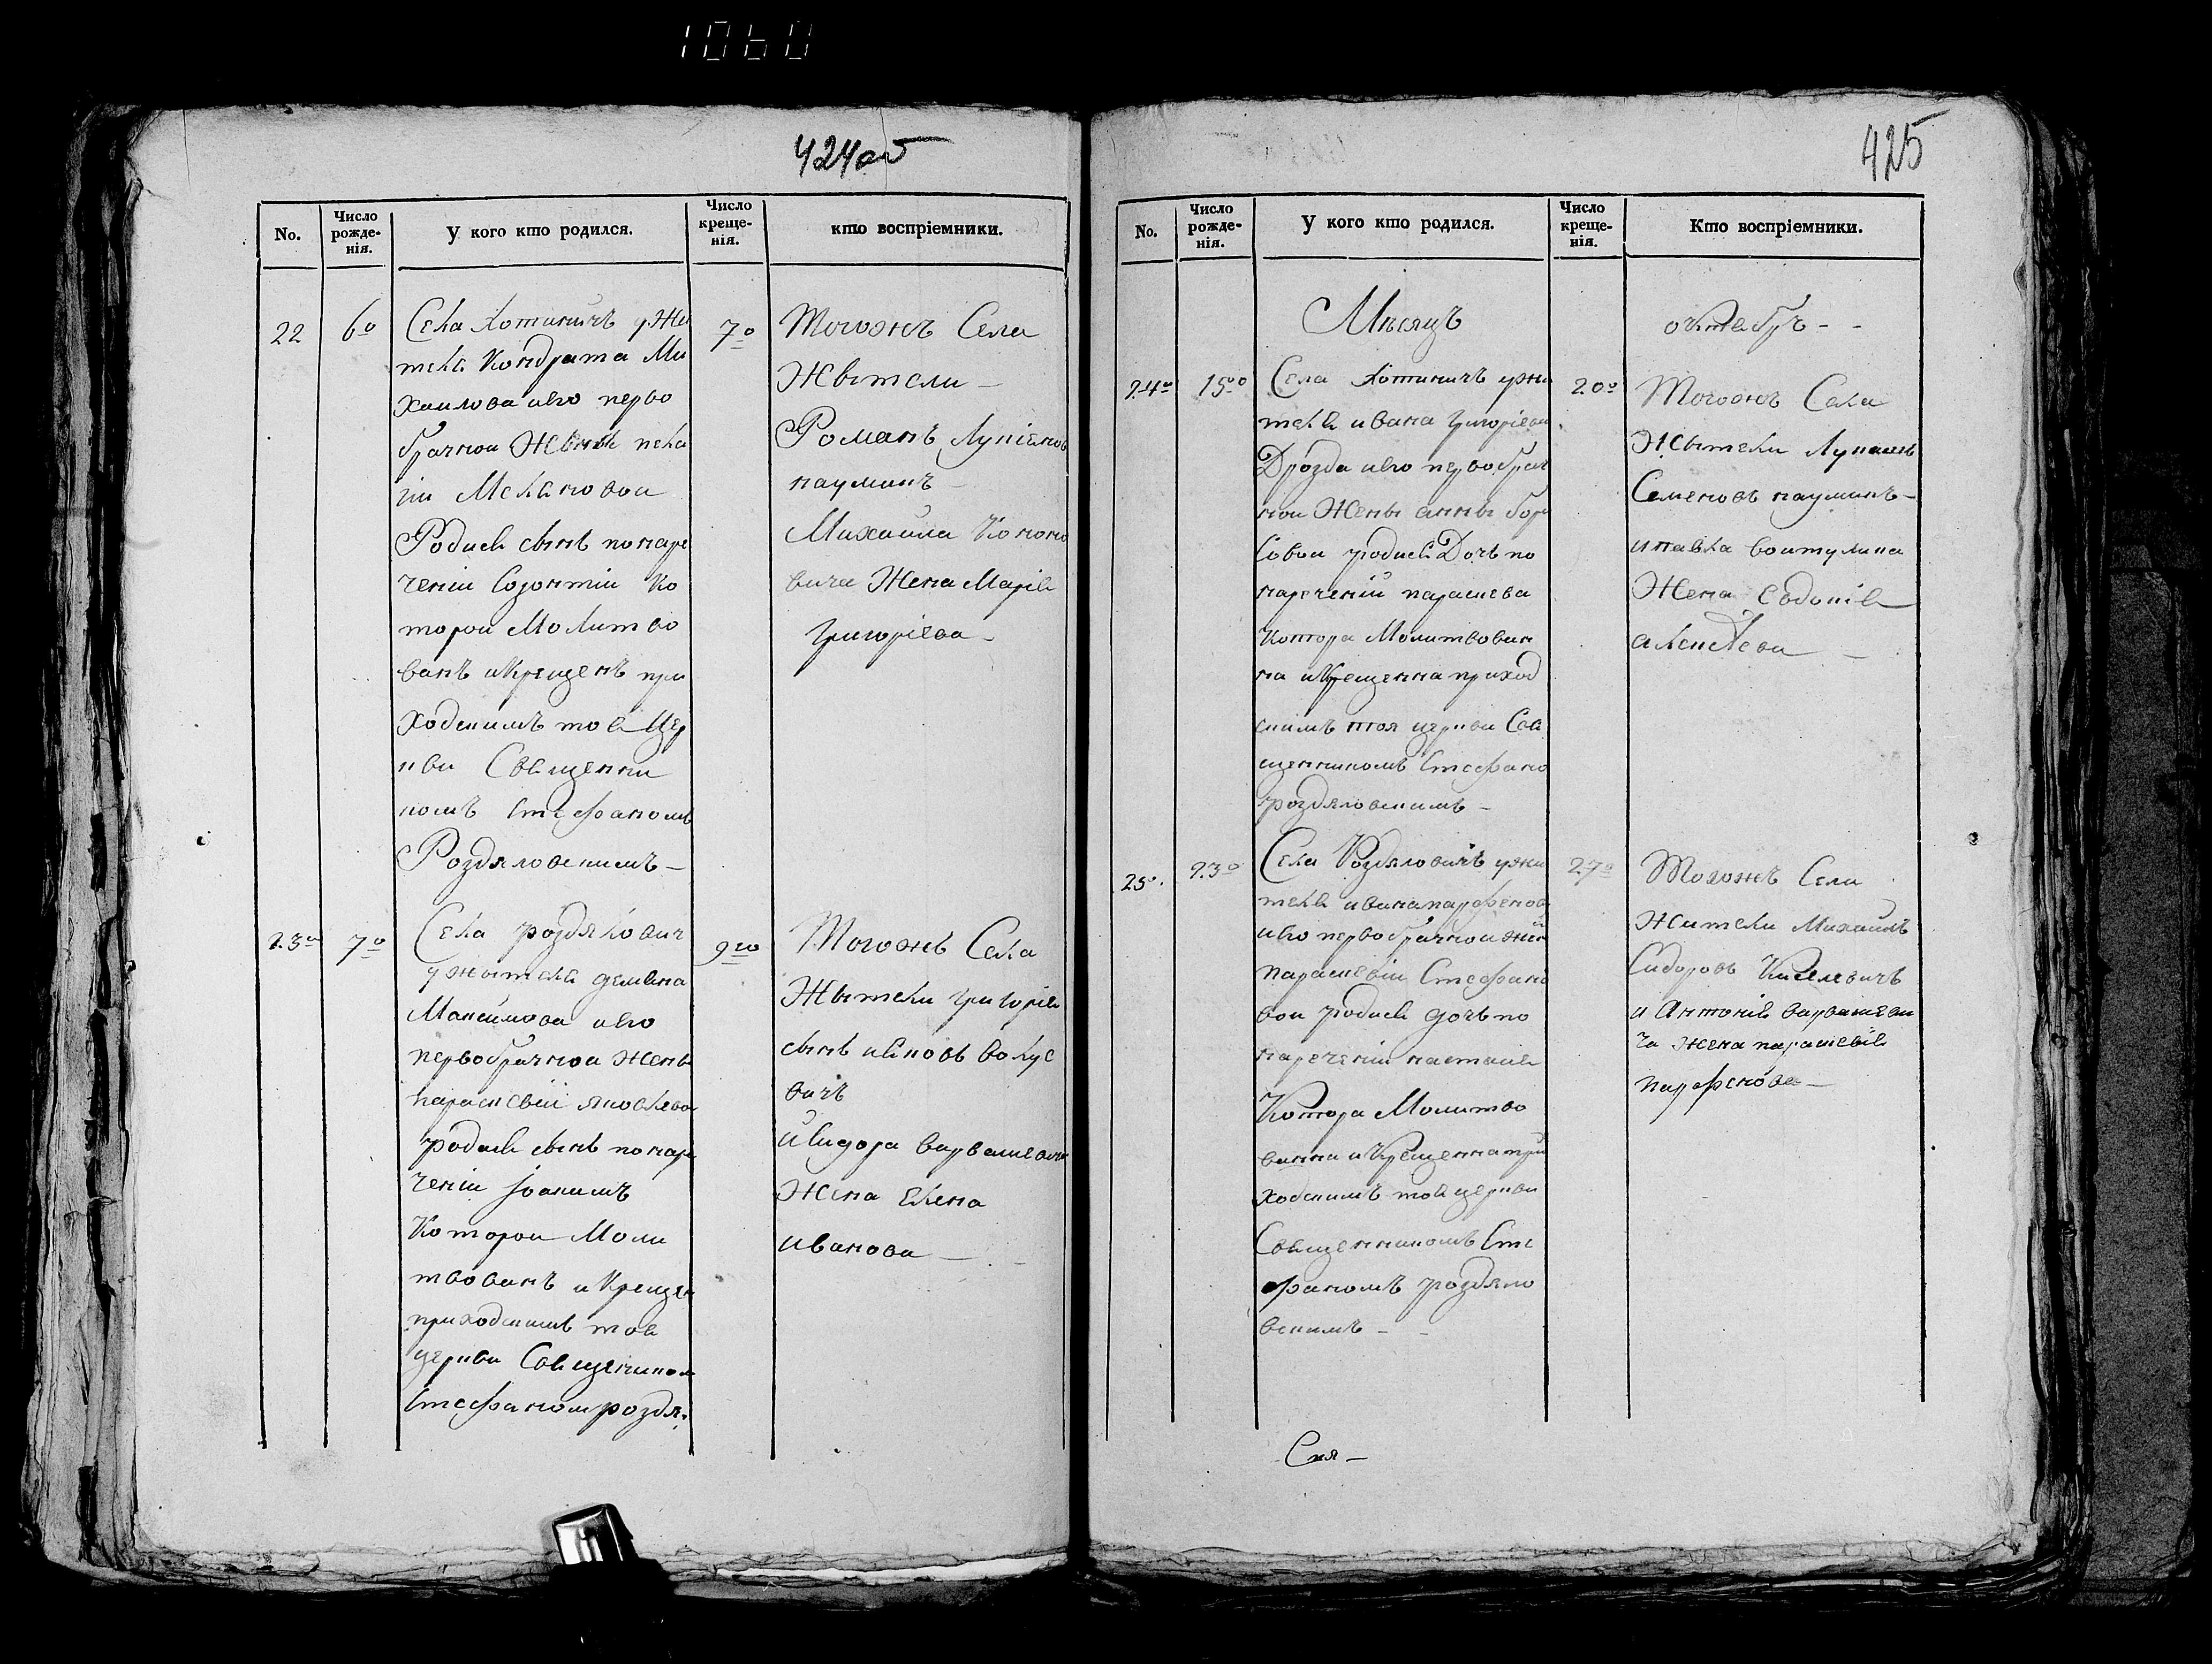 1060
424об
No.
Число рожде-нія.
У кого кто родился.
Число креще-нія.
кто воспріемники.
22
6о
Села Хотиничъ у Жи
теля Кондрата Ми
хаилова иего перво
брачнои Жены пела
гіи
Родися сынъ понаре
ченіи Созонтіи Ко
торои Молитво
ванъ иКрещенъ при
ходскимъ тоя Цер
кви Священни
комъ Стефаномъ
Роздяловскимъ —
7о
Тогожъ Села
Жытели —
Романъ
наумикъ —
Михаила Конано
вича Жена Марія
Григоріева —
23о
7о
Села роздялович
у жытеля демяна
Максимова иего
первобрачнои Жены
параскевіи яковлевои
родися сынъ понаре
ченіи Іоакимъ
Которои Моли
твованъ и Крещен
приходскимъ тоя
церкви Священиком
Стефаномъ роздя.
9го
Тогожъ Села
Жытели григорія
сынъ
вичъ
иСидора
Жена Елена
иванова —
425
No.
Число рожде-нія.
У кого кто родился.
Число креще-нія.
Кто воспріемники.
Мѣсяцъ
октябръ - -
24о
15о
Села Хотиничъ ужи
теля ивана григоріева
Дрозда иего первобрач
нои Жены анны бори
совои родися Дочъ по
нареченіи параскева
Котора Молитвован
на иКрещенна приход
скимъ тоя церкви Свя
щенникомъ Стефано
роздяловскимъ —
20о
Тогожъ Села
Жытели
Семеновъ наумикъ —
ипавла воитулика
Жена Евдокія
алексѣева —
25о.
23о
Села Роздяловичъ ужи
теля ивана парфенова
иего первобрачнои жен
параскевіи Стефано
вои родися дочъ по
нареченіи настасія
Котора Молитво
ванна иКрещеннапри
ходскимъ тоя церкви
Священникомъ Сте
фаномъ роздяло
вскимъ — -
27о
Тогожъ Села
Жители Михаилъ
Сидоровъ Киселевичъ
и Антонія
ча жена параскевія
парфенова —
Сия —